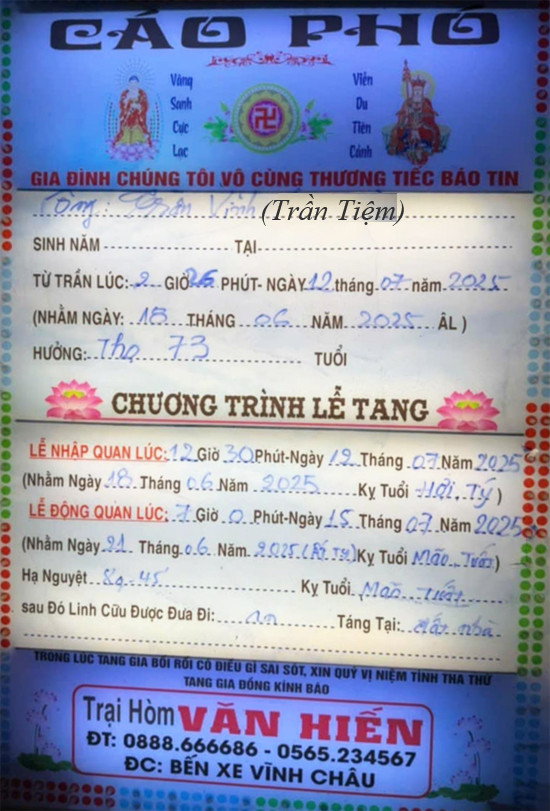 CÁO PHÓ
Vãng Sanh Cực Lạc
Viễn Du Tiên Cảnh
GIA ĐÌNH CHÚNG TÔI VÔ CÙNG THƯƠNG TIẾC BÁO TIN
Ông: Trần Vinh (Trần Tiệm)
SINH NĂM TẠI
TỪ TRẦN LÚC: 2 GIỜ 26 PHÚT- NGÀY 12 tháng 07 năm 2025
(NHẰM NGÀY: 18 THÁNG 06 NĂM 2025 ÂL )
HƯỞNG: Thọ 73 TUỔI
CHƯƠNG TRÌNH LỄ TANG
LỄ NHẬP QUAN LÚC: 12 Giờ 30 Phút-Ngày 12 Tháng 07 Năm 2025
(Nhằm Ngày 18 Tháng 06 Năm 2025 Kỵ Tuổi Hợi, Tý )
LỄ ĐỘNG QUAN LÚC: 7 Giờ 0 Phút-Ngày 15 Tháng 07 Năm 2025
(Nhằm Ngày 21 Tháng 06 Năm 2025 (Ất Tỵ) Kỵ Tuổi Mão, Tuất)
Hạ Nguyệt 8g.45 Kỵ Tuổi Mão Tuất
sau Đó Linh Cữu Được Đưa Đi: an Táng Tại: đất nhà
TRONG LÚC TANG GIA BỐI RỐI CÓ ĐIỀU GÌ SAI SÓT, XIN QUÝ VỊ NIỆM TÌNH THA THỨ
TANG GIA ĐỒNG KÍNH BÁO
Trại Hòm VĂN HIẾN
ĐT: 0888.666686 - 0565.234567
ĐC: BẾN XE VĨNH CHÂU